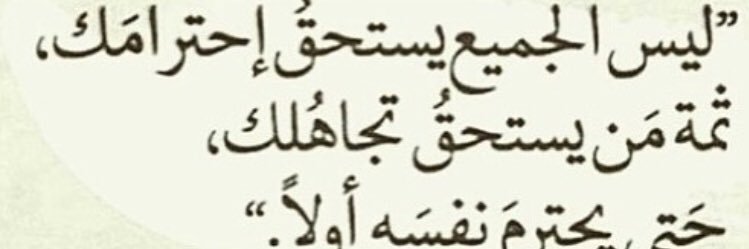 ”ليس الجميع يستحقُ إحترامَك،
ثمة مَن يستحقُ تجاهُلك،
حَتى يحترمَ نفسَه أولاً.“